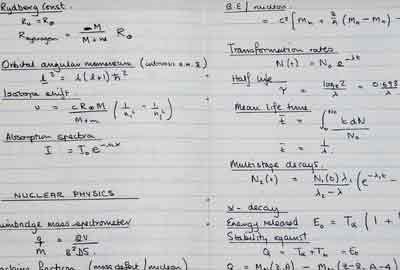 Rydberg Const.
R∞ = R∞
R hydrogen = M / M+m R∞
Orbital angular momentum
l² = l(l+1)ħ²
Isotope shift.
υ = cR∞M / M+m (1/n₁² - 1/n₂²)
Absorption spectra
I = I₀e^-nx
NUCLEAR PHYSICS
mass spectrometer
q/M = 2V / B²DS
fraction (mass defect / nucleon)
B.E / nucleon
= c² [Mn + z/A (MH - Mn) -
Transformation rates
N(t) = N₀ e^-λt
Half life
τ = loge2 / λ = 0.693
Mean life time
t̄ = ∫ t dN / N₀
t̄ = 1/λ
Multistage decays.
N₂(t) = N₁(0)λ₁ / λ₂ - λ (e^-λ₁t -
α - decay
Energy released E₀ = Tα (1 +
Stability against
Q = Tα + Tb = E₀
Q = Mn(Z,A) - Mn(Z-2, A-4)